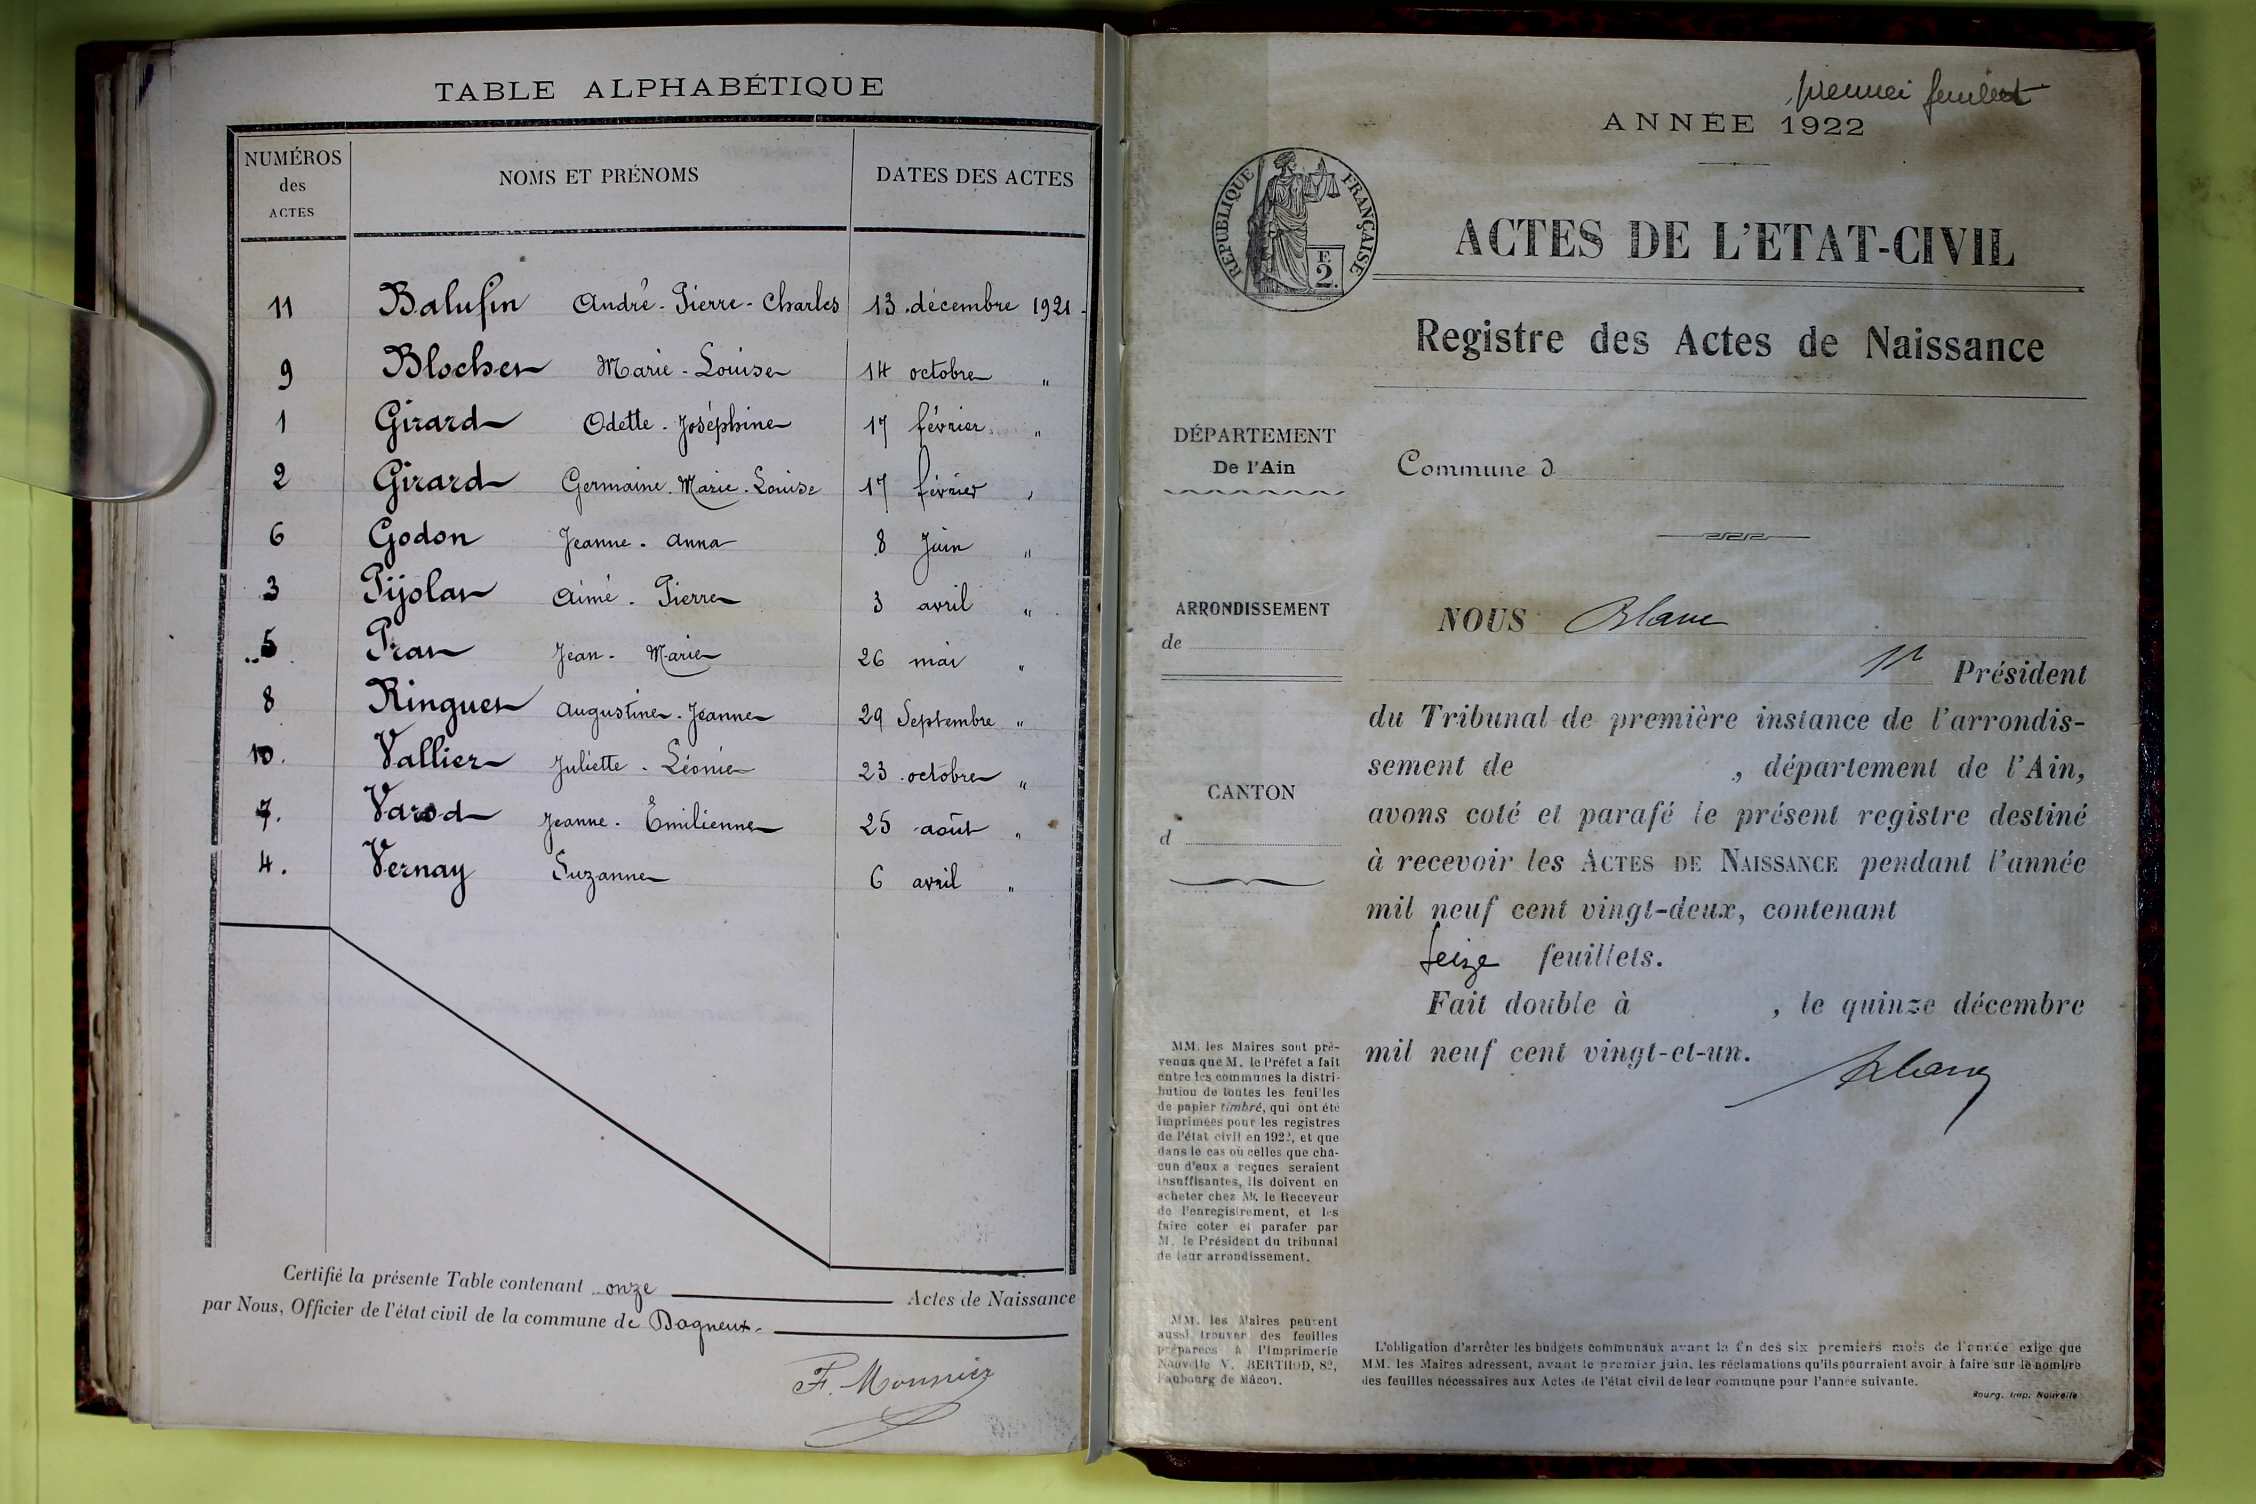 TABLE ALPHABÉTIQUE
NUMÉROS des ACTES NOMS ET PRÉNOMS DATES DES ACTES
11 Balufin André - Pierre - Charles 13 décembre 1921 -
9 Blocher Marie - Louise 14 octobre "
1 Girard Odette - Joséphine 17 février "
2 Girard Germaine - Marie - Louise 17 février "
6 Godon Jeanne - Anna 8 Juin "
3 Pijolar Aimé - Pierre 3 avril "
5 Pran Jean - Marie 26 mai "
8 Ringuer Augustine - Jeanne 29 Septembre "
10. Vallier Juliette - Léonie 23 octobre "
7. Varod Jeanne - Emilienne 25 août "
4. Vernay Suzanne 6 avril "
Certifié la présente Table contenant onze Actes de Naissance
par Nous, Officier de l'état civil de la commune de Dagneux.
F. Monnier
premier feuillet
ANNÉE 1922
RÉPUBLIQUE FRANÇAISE
F. 2.
ACTES DE L'ETAT-CIVIL
Registre des Actes de Naissance
DÉPARTEMENT
De l'Ain
Commune d
ARRONDISSEMENT
de
CANTON
d
NOUS Blanc
Président
du Tribunal de première instance de l'arrondis-
sement de , département de l'Ain,
avons coté et parafé le présent registre destiné
à recevoir les ACTES DE NAISSANCE pendant l'année
mil neuf cent vingt-deux, contenant
seize feuillets.
Fait double à , le quinze décembre
mil neuf cent vingt-et-un.
Blanc
MM. les Maires sont pré-
venus que M. le Préfet a fait
entre les communes la distri-
bution de toutes les feuilles
de papier timbré, qui ont été
imprimées pour les registres
de l'état civil en 1922, et que
dans le cas où celles que cha-
cun d'eux a reçues seraient
insuffisantes, ils doivent en
acheter chez M. le Receveur
de l'enregistrement, et les
faire coter et parafer par
M. le Président du tribunal
de leur arrondissement.
MM. les Maires peuvent
aussi trouver des feuilles
préparées à l'Imprimerie
Nouvelle V. BERTHOD, 82,
Faubourg de Mâcon.
L'obligation d'arrêter les budgets communaux avant la fin des six premiers mois de l'année exige que
MM. les Maires adressent, avant le premier juin, les réclamations qu'ils pourraient avoir à faire sur le nombre
des feuilles nécessaires aux Actes de l'état civil de leur commune pour l'année suivante.
Bourg. Imp. Nouvelle